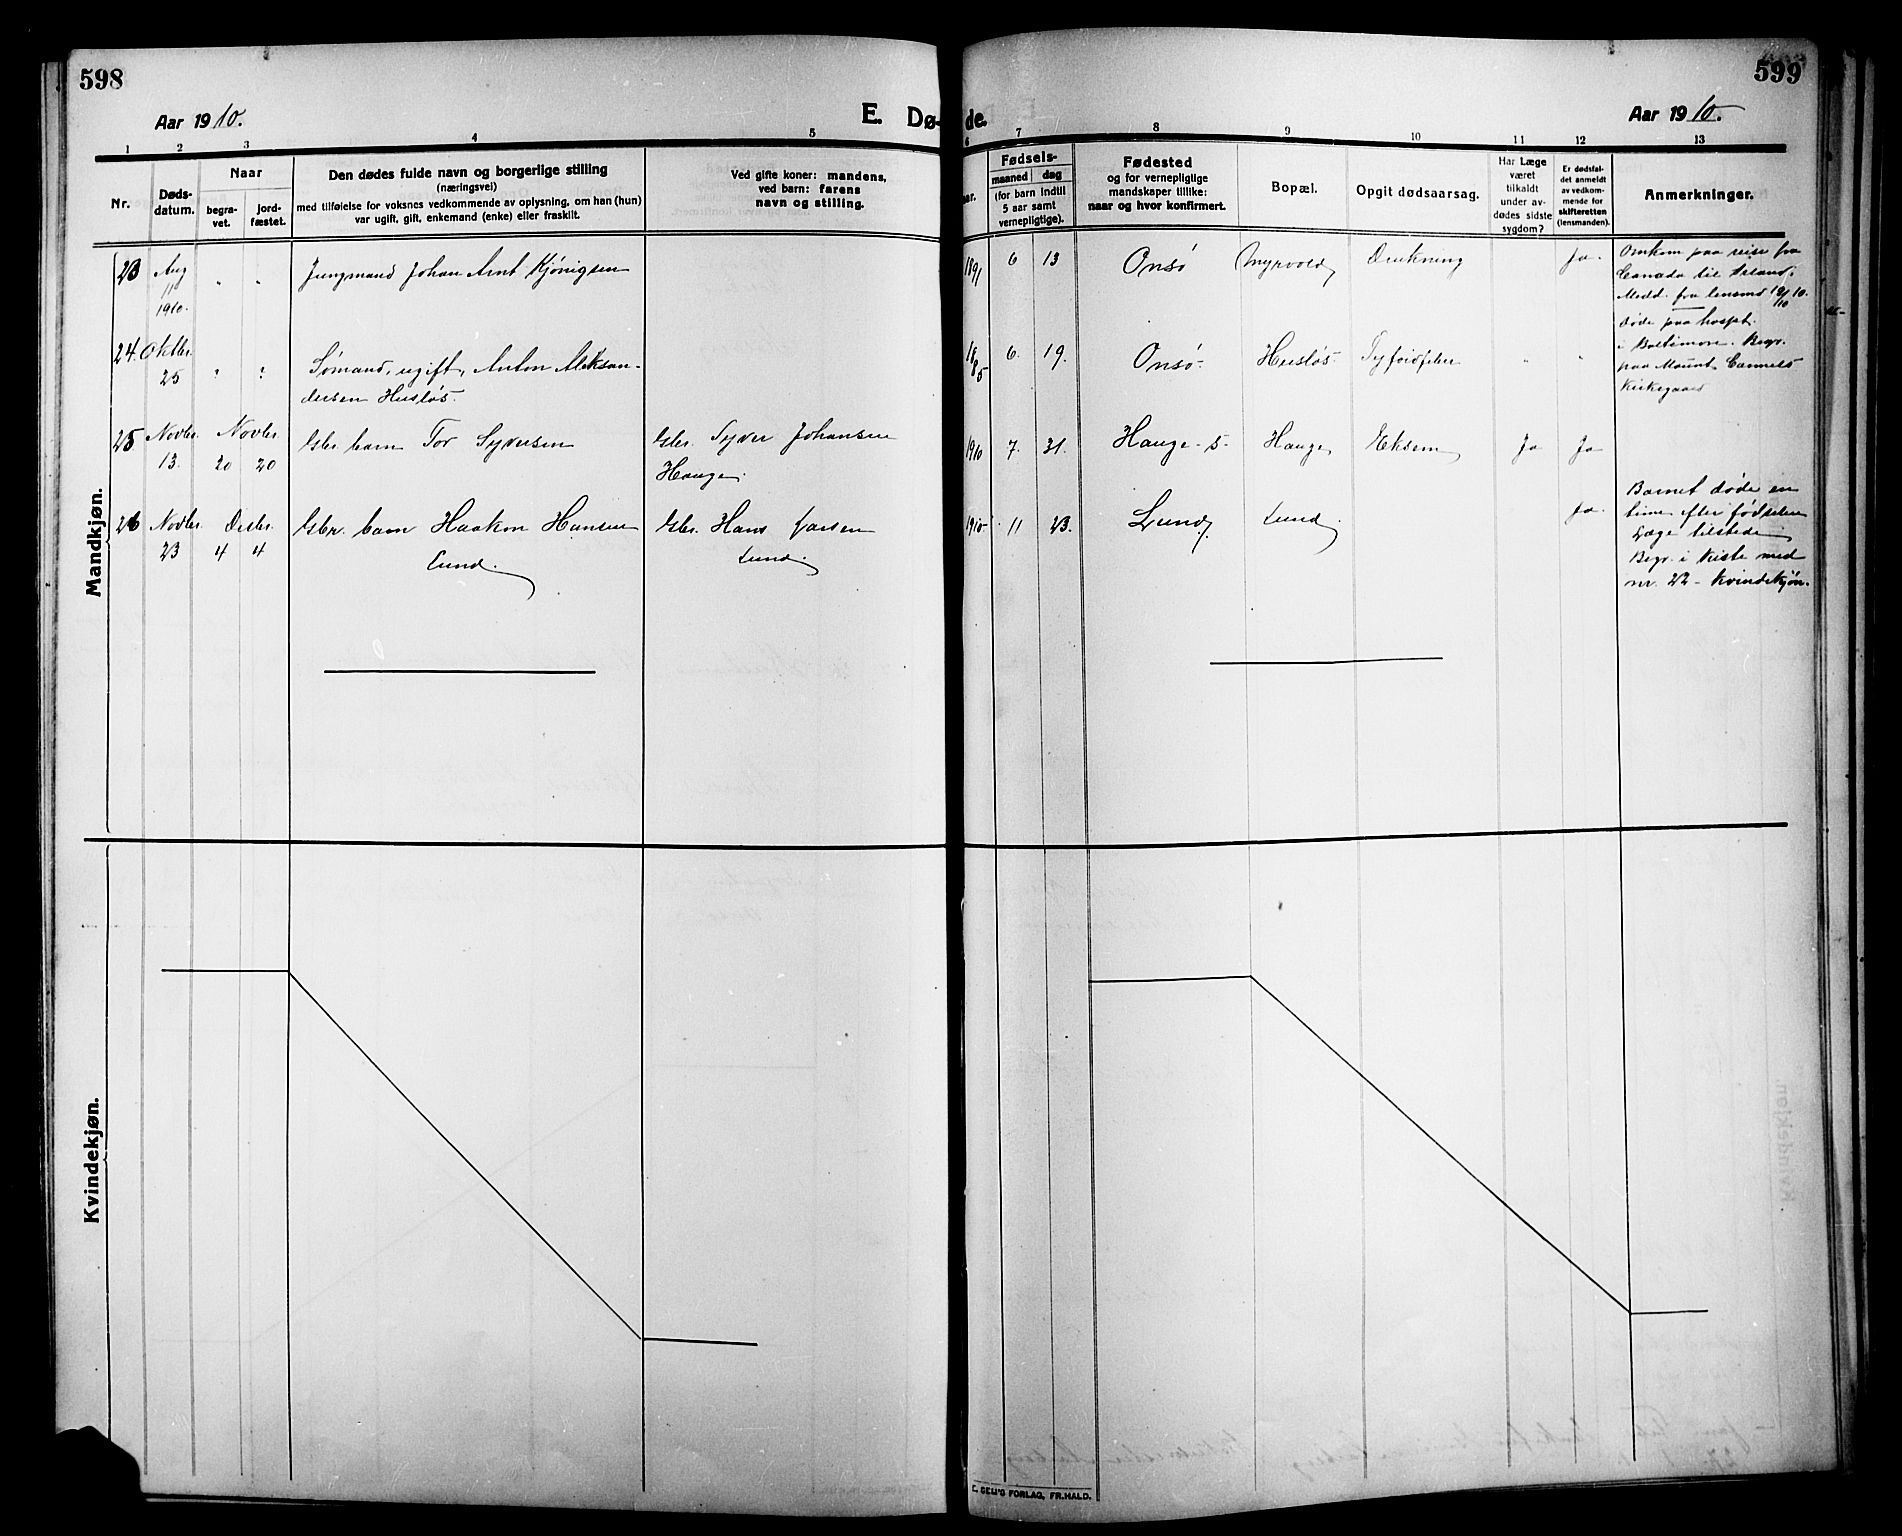 598
599
Aar 1910.
E. Dø- de.
Aar 1910.
1 2 3 4 5 6 7 8 9 10 11 12 13
Nr.
Døds-
datum.
Naar
begra-
vet.
jord-
fæstet.
Den dødes fulde navn og borgerlige stilling
(næringsvei)
med tilføielse for voksnes vedkommende av oplysning, om han (hun)
var ugift, gift, enkemand (enke) eller fraskilt.
Ved gifte koner: mandens,
ved barn: farens
navn og stilling.
aar.
Fødsels-
maaned dag
(for barn indtil
5 aar samt
vernepligtige).
Fødested
og for vernepligtige
mandskaper tillike:
naar og hvor konfirmert.
Bopæl.
Opgit dødsaarsag.
Har Læge
været
tilkaldt
under av-
dødes sidste
sygdom?
Er dødsfal-
det anmeldt
av vedkom-
mende for
skifteretten
(lensmanden).
Anmerkninger.
Mandkjøn.
23 Aug
11
1910.
" "
Jungmand Johan Arnt Kjønigsen
1891 6 13 Onsø Myrvold Drukning Ja.
Omkom paa reise fra
Canada til Irland.
Medd. fra lensmd 19/10 10.
24. Oktbr.
25 " "
Sømand, ugift, Anton Aleksan-
dersen Husløs.
1885 6. 19. Onsø. Husløs Tyfoidfeber " "
Døde paa hospt.
i Baltimore. Begr.
paa Mount Carmels
Kirkegaard
25 Novbr. Novbr.
13. 20 20
Gbr. barn Tor Syversen
Gbr. Syver Johansen
Hauge.
1910 7. 31. Hauge - s. Hauge Eksem Ja Ja
26 Novbr. Desbr.
23 4 4
Gbr. barn Haakon Hansen
Lund.
Gbr. Hans Larsen
Lund.
1910. 11 23. Lund. Lund Ja.
Barnet døde en
time efter fødselen
Læge tilstede
Begr. i kiste med
nr. 22 - Kvindekjøn.
Kvindekjøn.
E. SEM'S FORLAG, FR.HALD.